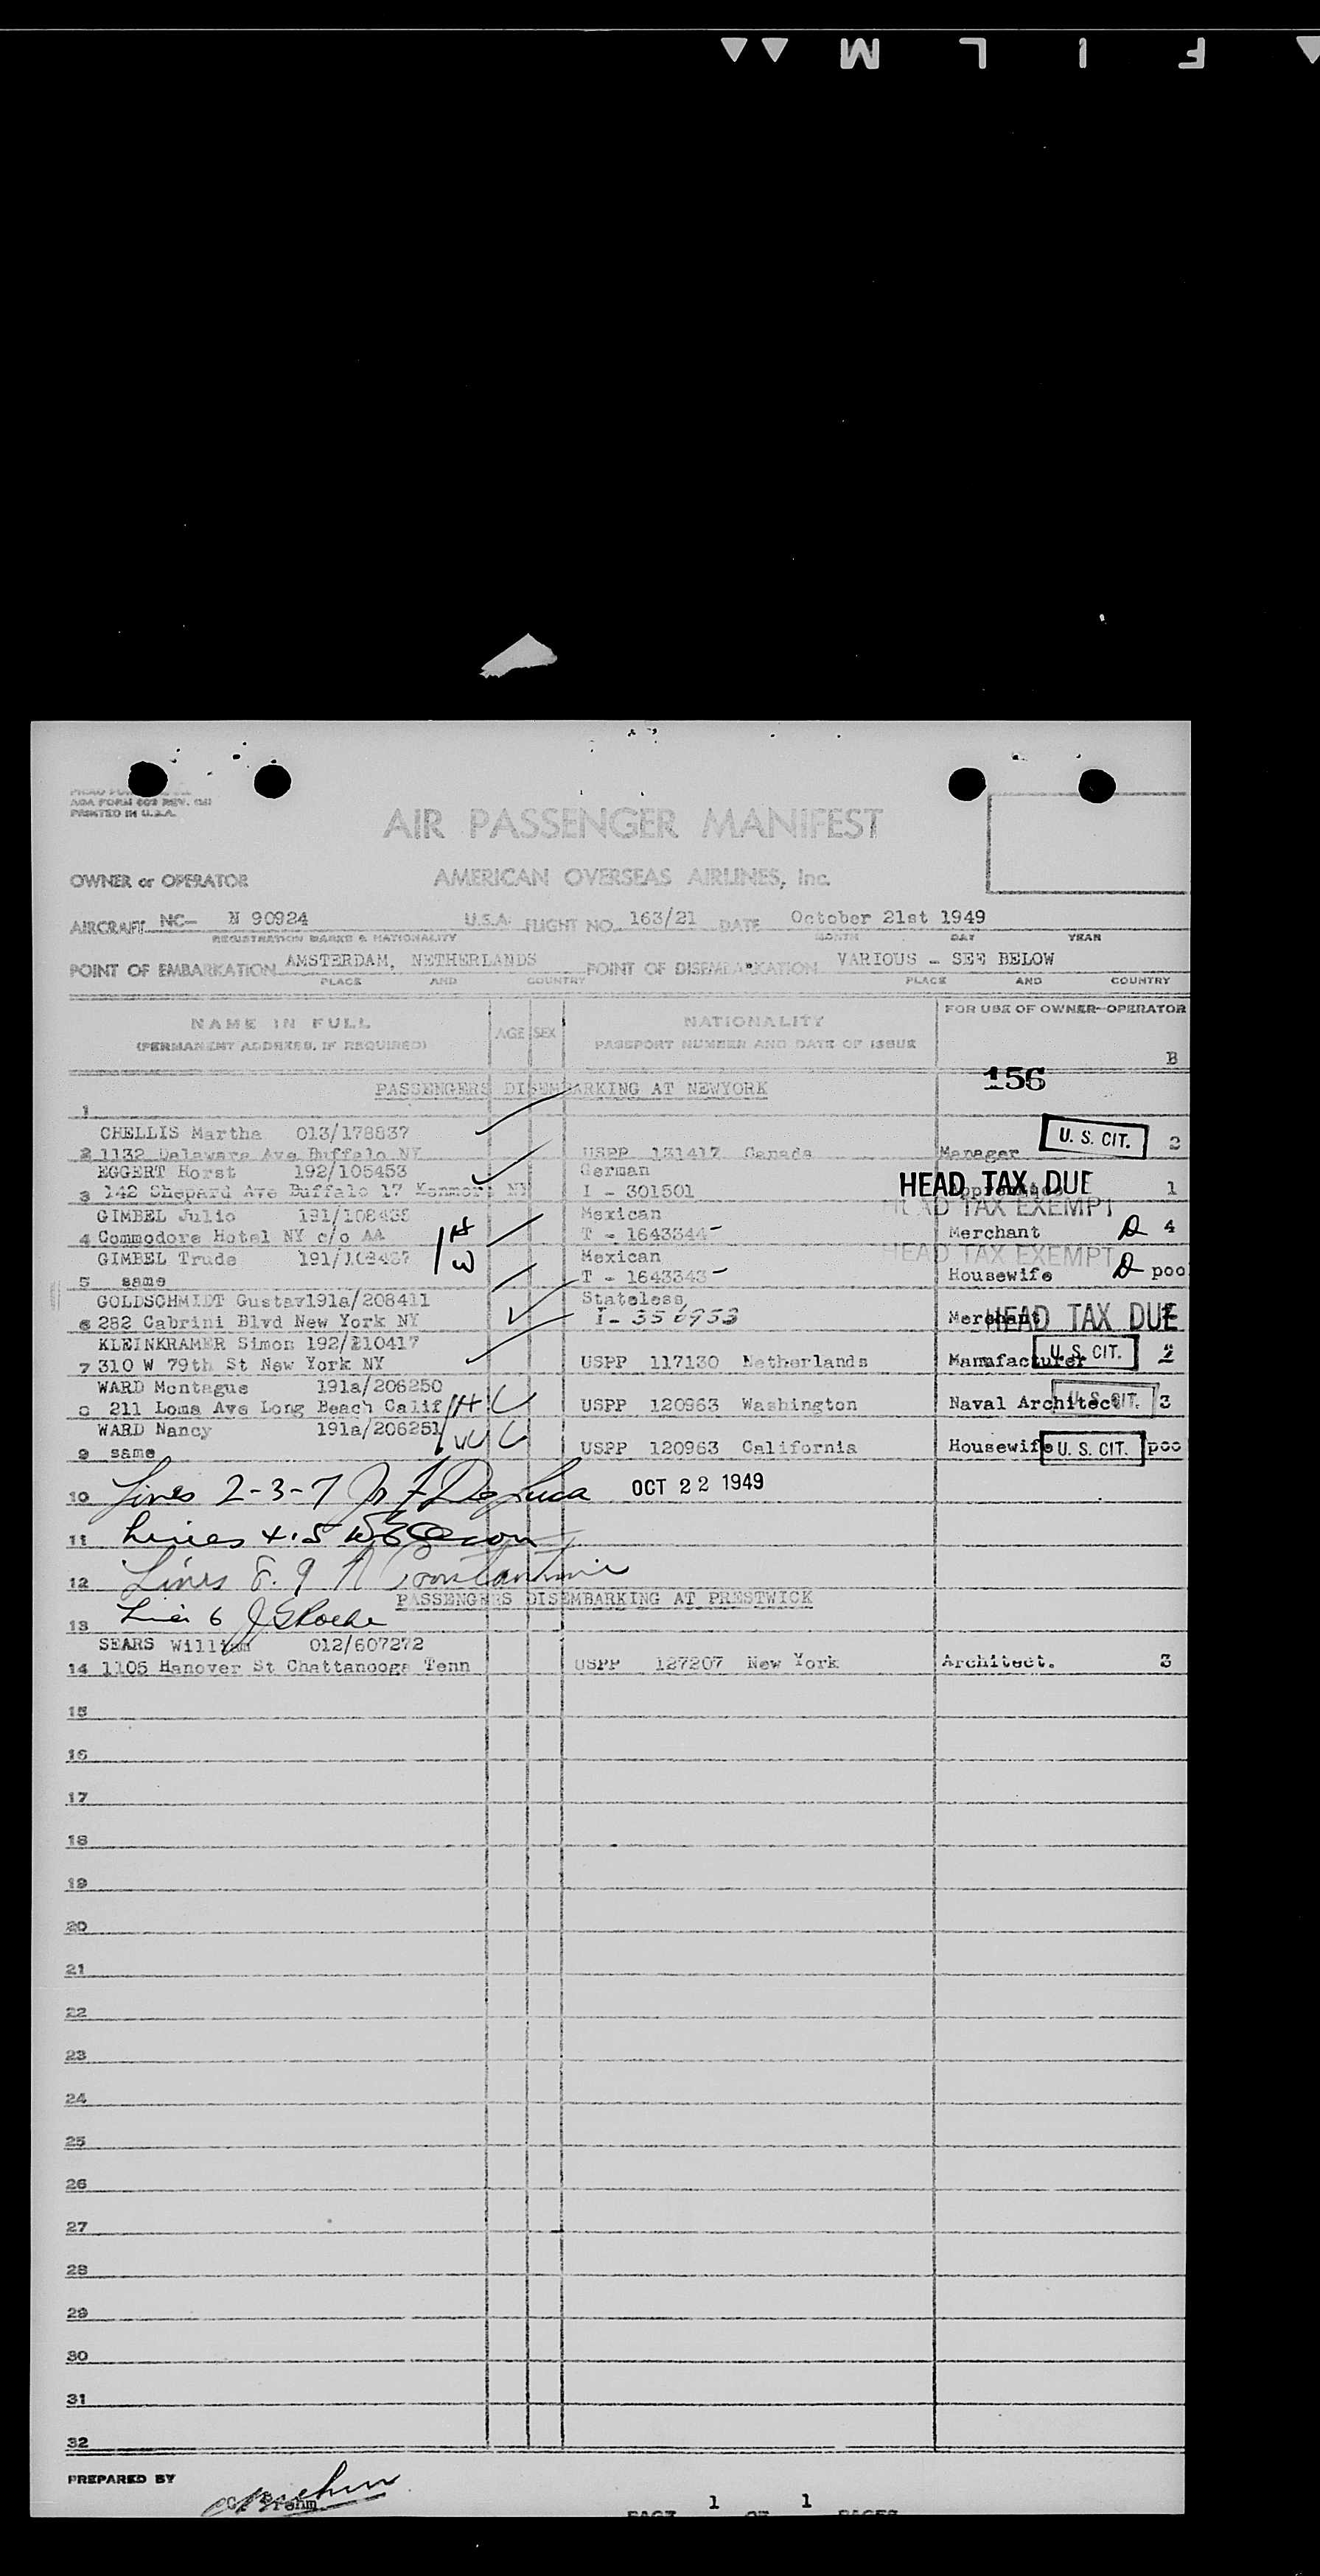 FILM
AOA FORM 602 REV.
PRINTED IN U.S.A.
AIR PASSENGER MANIFEST
OWNER or OPERATOR AMERICAN OVERSEAS AIRLINES, Inc.
AIRCRAFT NC- N 90924 U.S.A. FLIGHT NO. 163/21 DATE October 21st 1949
REGISTRATION MARKS & NATIONALITY MONTH DAY YEAR
POINT OF EMBARKATION AMSTERDAM, NETHERLANDS POINT OF DISEMBARKATION VARIOUS - SEE BELOW
PLACE AND COUNTRY PLACE AND COUNTRY
NAME IN FULL AGE SEX NATIONALITY FOR USE OF OWNER-OPERATOR
(PERMANENT ADDRESS, IF REQUIRED) PASSPORT NUMBER AND DATE OF ISSUE
B
156
PASSENGERS DISEMBARKING AT NEWYORK
1
CHELLIS Martha 013/178837 U. S. CIT.
2 1132 Delaware Ave Buffalo NY USPP 131417 Canada Manager 2
EGGERT Horst 192/105453 German HEAD TAX DUE
3 142 Shepard Ave Buffalo 17 Kenmore NY I - 301501 1
GIMBEL Julio 191/108436 Mexican HEAD TAX EXEMPT
4 Commodore Hotel NY c/o AA H T - 1643344- Merchant 4
GIMBEL Trude W Mexican HEAD TAX EXEMPT
5 same T - 1643343- Housewife poo
GOLDSCHMIDT Gustav191a/208411 Stateless
6 282 Cabrini Blvd New York NY Merchant HEAD TAX DUE
KLEINKRAMER Simon 192/210417 U. S. CIT.
7 310 W 79th St New York NY USPP 117130 Netherlands Manufacturer 2
WARD Montague 191a/206250
8 211 Loma Ave Long Beach Calif H USPP 120963 Washington Naval Architect U. S. CIT. 3
WARD Nancy 191a/206251
9 same W USPP 120963 California Housewife U. S. CIT. poo
10 Lines 2-3-7 OCT 22 1949
11 Lines 4.5
12 Lines 8. 9
PASSENGERS DISEMBARKING AT PRESTWICK
13 Line 6
SEARS William 012/607272
14 1105 Hanover St Chattanooga Tenn USPP 127207 New York Architect. 3
15
16
17
18
19
20
21
22
23
24
25
26
27
28
29
30
31
32
PREPARED BY
PAGE 1 OF 1 PAGES